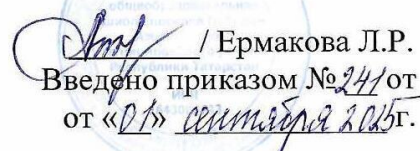 / Ермакова Л.Р.
Введено приказом №241от
от «01» сентября 2025г.